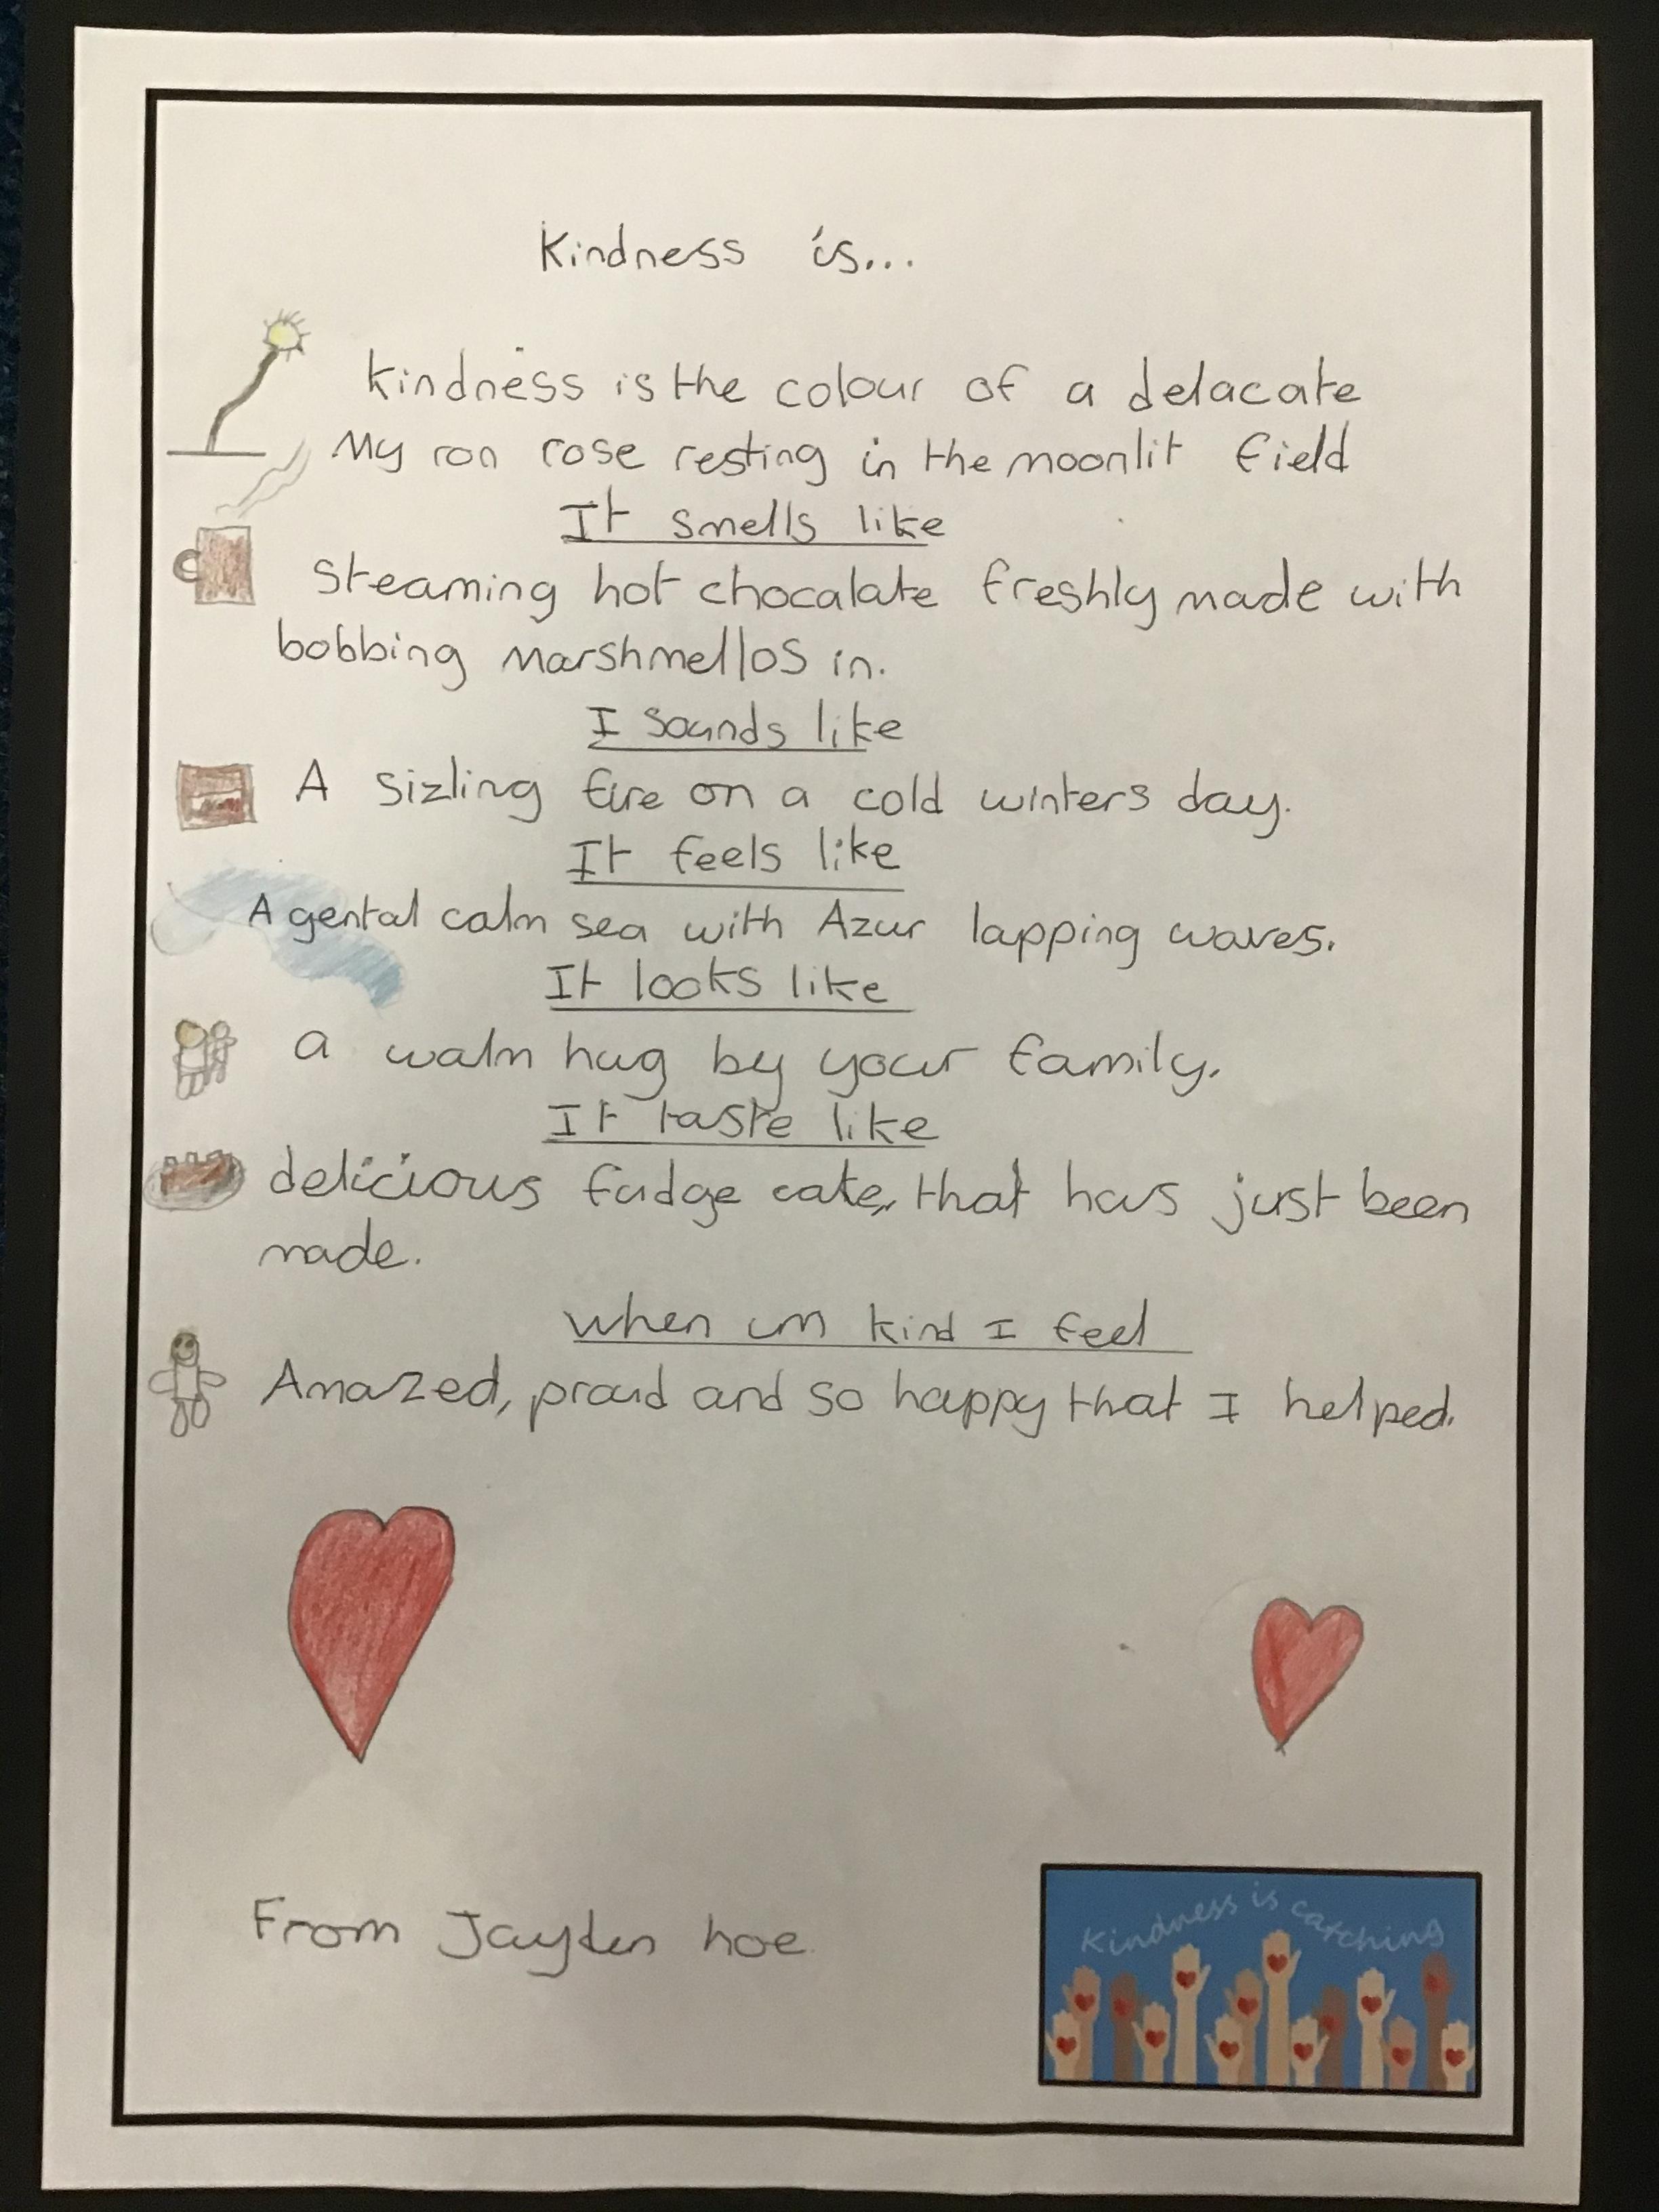 Kindness is...
kindness is the colour of a delacate
My ron rose resting in the moonlit field
It smells like
steaming hot chocalate freshly made with
bobbing marshmellos in.
I sounds like
A sizling fire on a cold winters day.
It feels like
A gental calm sea with Azur lapping waves.
It looks like
a walm hug by your family.
It taste like
delicious fudge cake, that has just been
made.
when im kind I feel
Amazed, proud and so happy that I helped.
From Jayden hoe
Kindness is catching